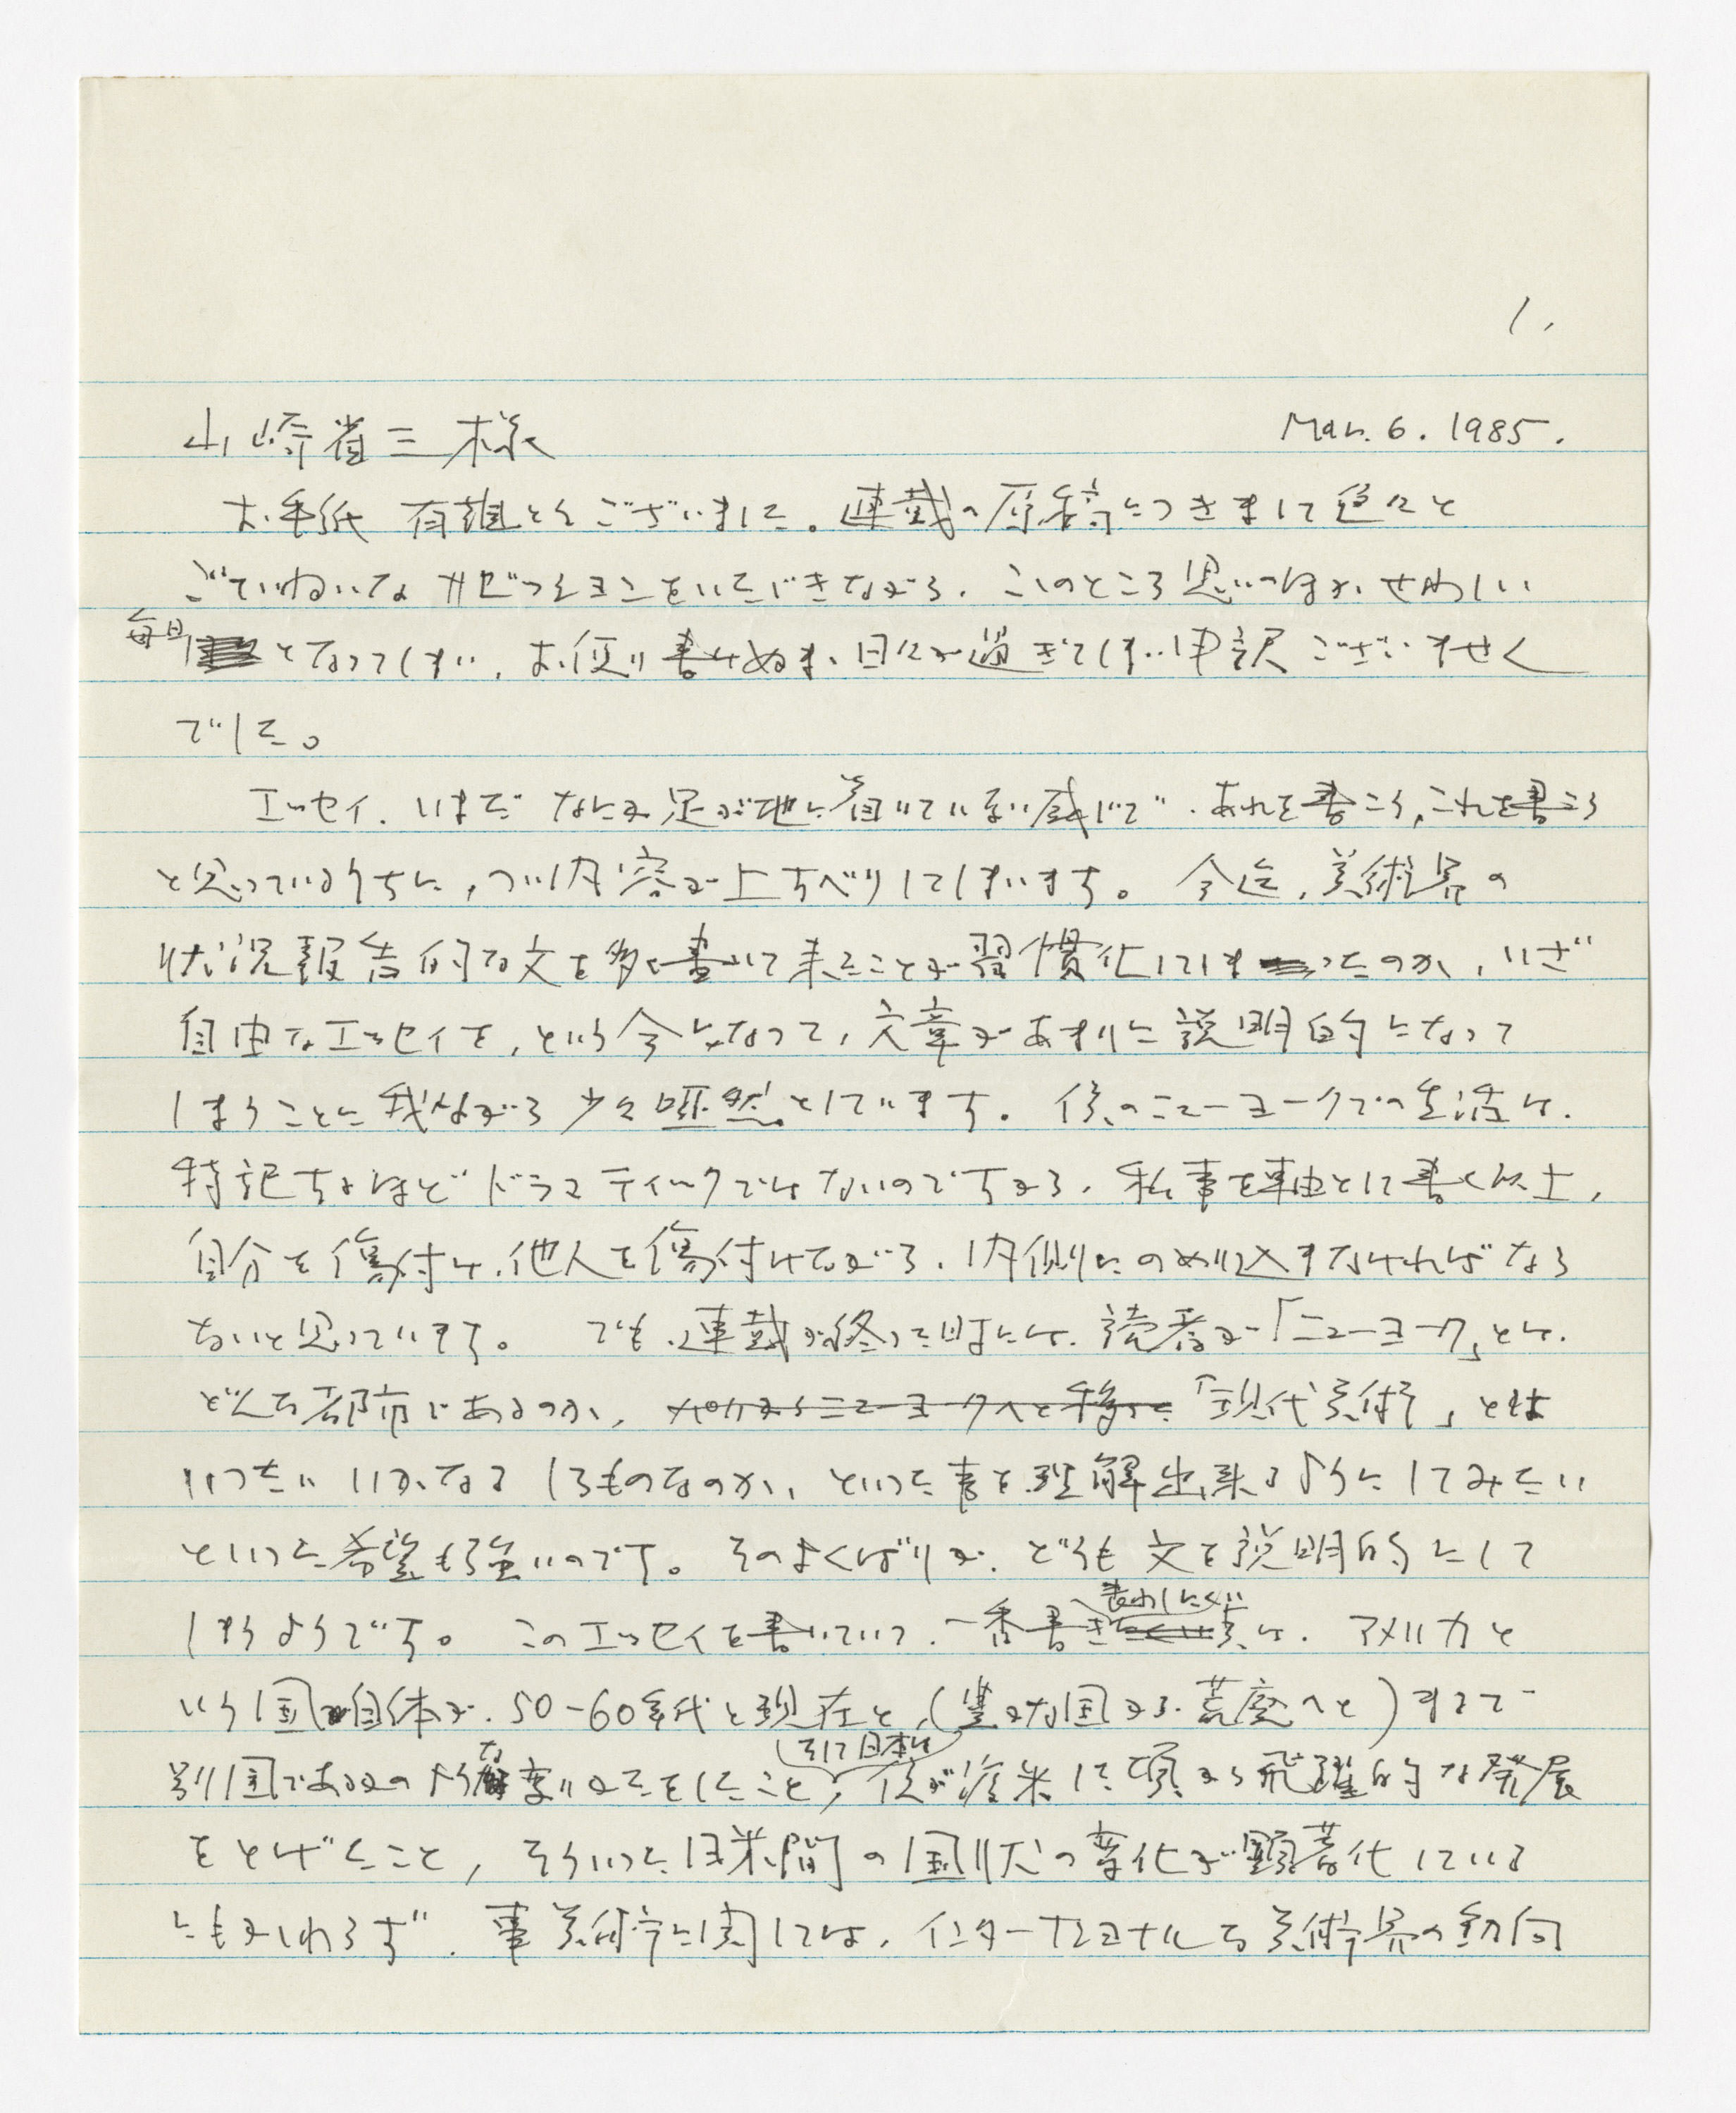 1.
山崎省三様 Mar. 6. 1985.
お手紙 有難とうございました。連載の原稿につきまして色々と
ごていねいなサゼッションをいただきながら、このところ思いのほか、せわしい
毎日となってしまい、お便り書けぬまゝ日々が過ぎてしまい申訳ございませく
でした。
エッセイ、いまだなにか足が地に着いていない感じで、あれを書こう、これを書こう
と思っているうちに、つい内容が上すべりしてしまいます。 今迄、美術界の
状況報告的な文を多く書いて来たことが習慣化してしまったのか、いざ
自由なエッセイを、という今になって、文章があまりに説明的になって
しまうことに我ながら少々唖然としています。 僕のニューヨークでの生活は、
特記するほどドラマティックではないのですから、私事を理由として書く以上、
自分を傷付け、他人を傷付けながら、内側にのめり込まなければなら
ないと思っています。 でも、連載が終った時には、読者が「ニューヨーク」とは、
どんな都市であるのか、パリからニューヨークへと移った「現代美術」とは
いったいいかなるしろものなのか、といった事を理解出来るようにしてみたい
といった希望も強いのです。そのよくばりが、どうも文を説明的にして
しまうようです。 このエッセイを書いていて、一番書き表わしにくい点は、アメリカと
いう国自体が、50-60年代と現在と、(豊かな国から、荒廃へと)まるで
別国であるかのような変りかたをしたこと、そして日本は僕が渡米した頃から飛躍的な発展
をとげたこと、そういった日米間の国状の変化が顕著化している
にもかゝわらず、事美術に関しては、インターナショナルな美術界の動向